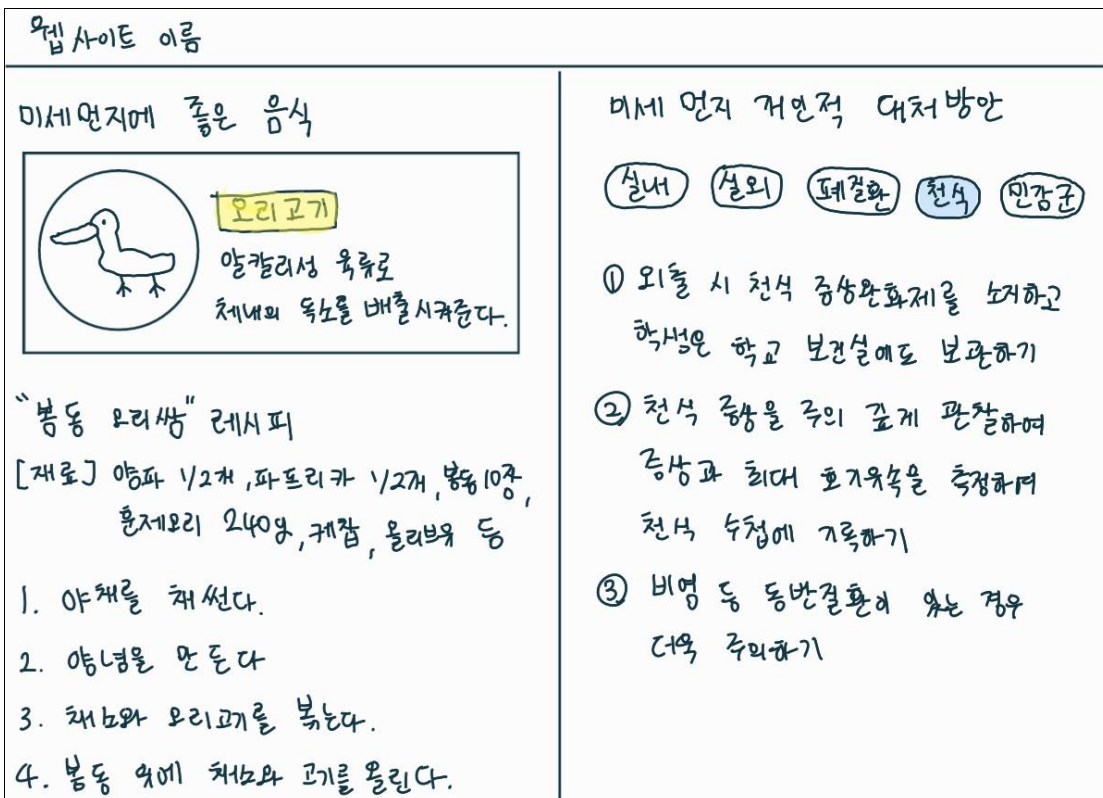 웹사이트 이름
미세먼지에 좋은 음식
오리고기
알칼리성 육류로
체내의 독소를 배출시켜준다.
"봄동 오리쌈" 레시피
[재료] 양파 1/2개, 파프리카 1/2개, 봄동 10장,
훈제오리 240g, 케찹, 올리브유 등
1. 야채를 채 썬다.
2. 양념을 만든다
3. 채소와 오리고기를 볶는다.
4. 봄동 위에 채소와 고기를 올린다.
미세먼지 개인적 대처방안
실내 실외 폐질환 천식 민감군
① 외출 시 천식 증상완화제를 소지하고
학생은 학교 보건실에도 보관하기
② 천식 증상을 주의 깊게 관찰하여
증상과 최대 호기유속을 측정하여
천식 수첩에 기록하기
③ 비염 등 동반질환이 있는 경우
더욱 주의하기